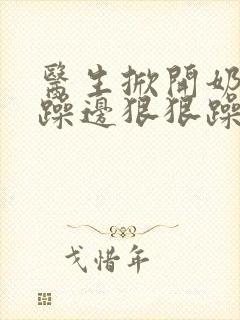 醫生掀開奶
躁邊狠狠躁
戈惜年